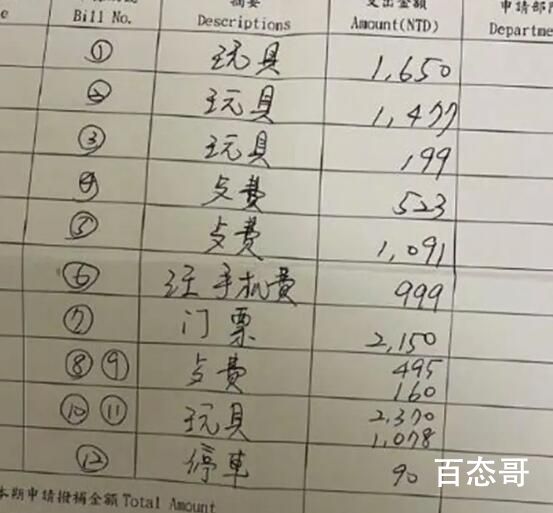 Bill No. 摘要 Descriptions 支出金額 Amount(NTD) 申請部門 Departme
① 玩具 1,650
② 玩具 1,477
③ 玩具 199
④ 点費 523
⑤ 点費 1,091
⑥ 汪手机費 999
⑦ 门票 2,150
⑧ ⑨ 点費 495
160
⑩ ⑪ 玩具 2,370
1,078
⑫ 停車 90
本期申請撥補金額 Total Amount
百态哥